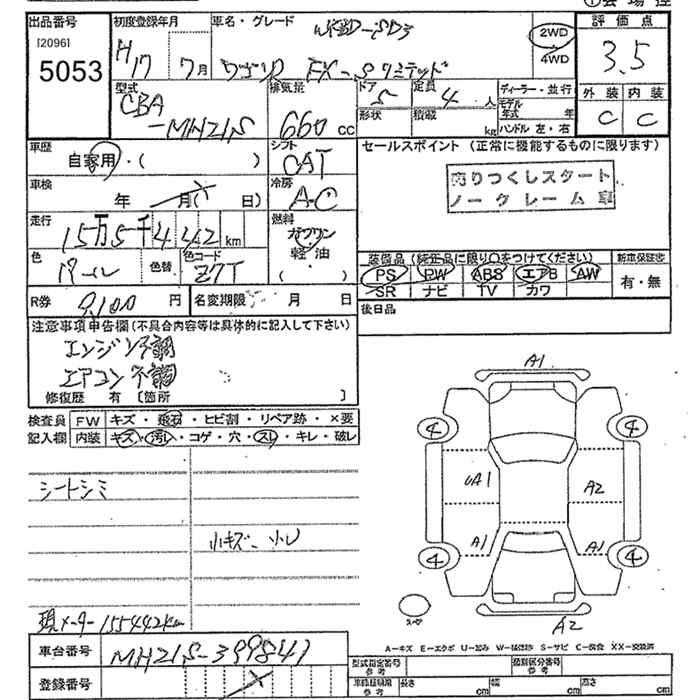 出品番号 初度登録年月 車名・グレード 評価点
[20961
5053
H17 7月 ワゴンR FX-Sリミテッド
2WD
4WD
3.5
型式
CBA
-MH21S
排気量
660 cc
ドア 5
定員 4 人
形状 積載 kg
ディーラー・並行
モデル年式 年
ハンドル 左・右
外装 内装
C C
車歴
自家用・( )
シフト
CAT
セールスポイント (正常に機能するものに限ります)
売りつくしスタート
ノークレーム車
車検 年 月( 日)
冷房
A-C
走行
15万5千442km
燃料
ガソリン
軽油
( )
色
パール
色替
色コード
Z7T
装備品(純正品に限り○をつけてください)
PS PW ABS エアB AW
SR ナビ TV カワ
新車保証書
有・無
R券 9,100 円
名変期限 月 日
後日品
注意事項申告欄(不具合内容等は具体的に記入して下さい)
エンジン不調
エアコン不調
修復歴 有 [箇所 ]
検査員
記入欄
FW キズ・飛石・ヒビ割・リペア跡・×要
内装 キズ・汚レ・コゲ・穴・スレ・キレ・破レ
シートシミ
小キズ、小U
現メーター155442km
A1
4 4
UA1 A2
A1 A1
4 4
スペア
A2
A=キズ E=エクボ U=凹み W=補修跡 S=サビ C=腐食 XX=交換済
車台番号 MH21S-399841
登録番号
型式指定番号
参考
類別区分番号
参考
車検証規格
参考
長さ cm
幅 cm
高さ cm